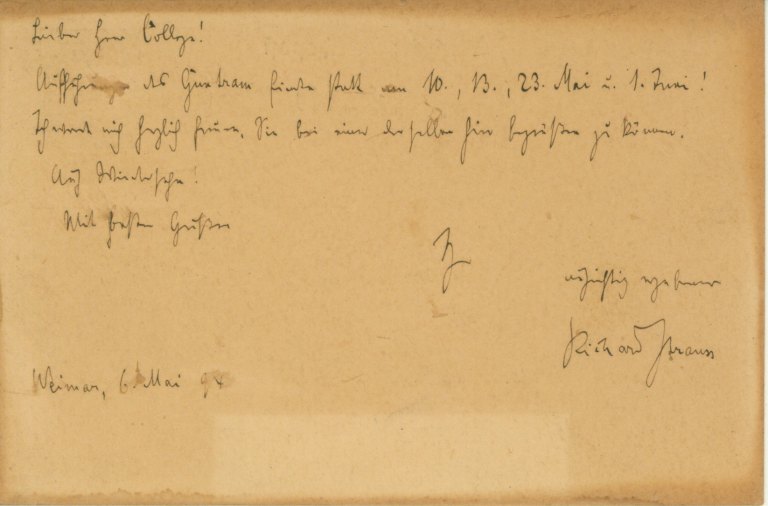 Lieber Herr College!
Aufführungen des Guntram finden statt am 10., 13., 23. Mai u. 1. Juni!
Ich werde mich herzlich freuen, Sie bei einer derselben hier begrüßen zu können.
Auf Wiedersehn!
Mit besten Grüßen
aufrichtig ergebener
Richard Strauss
Weimar, 6. Mai 94